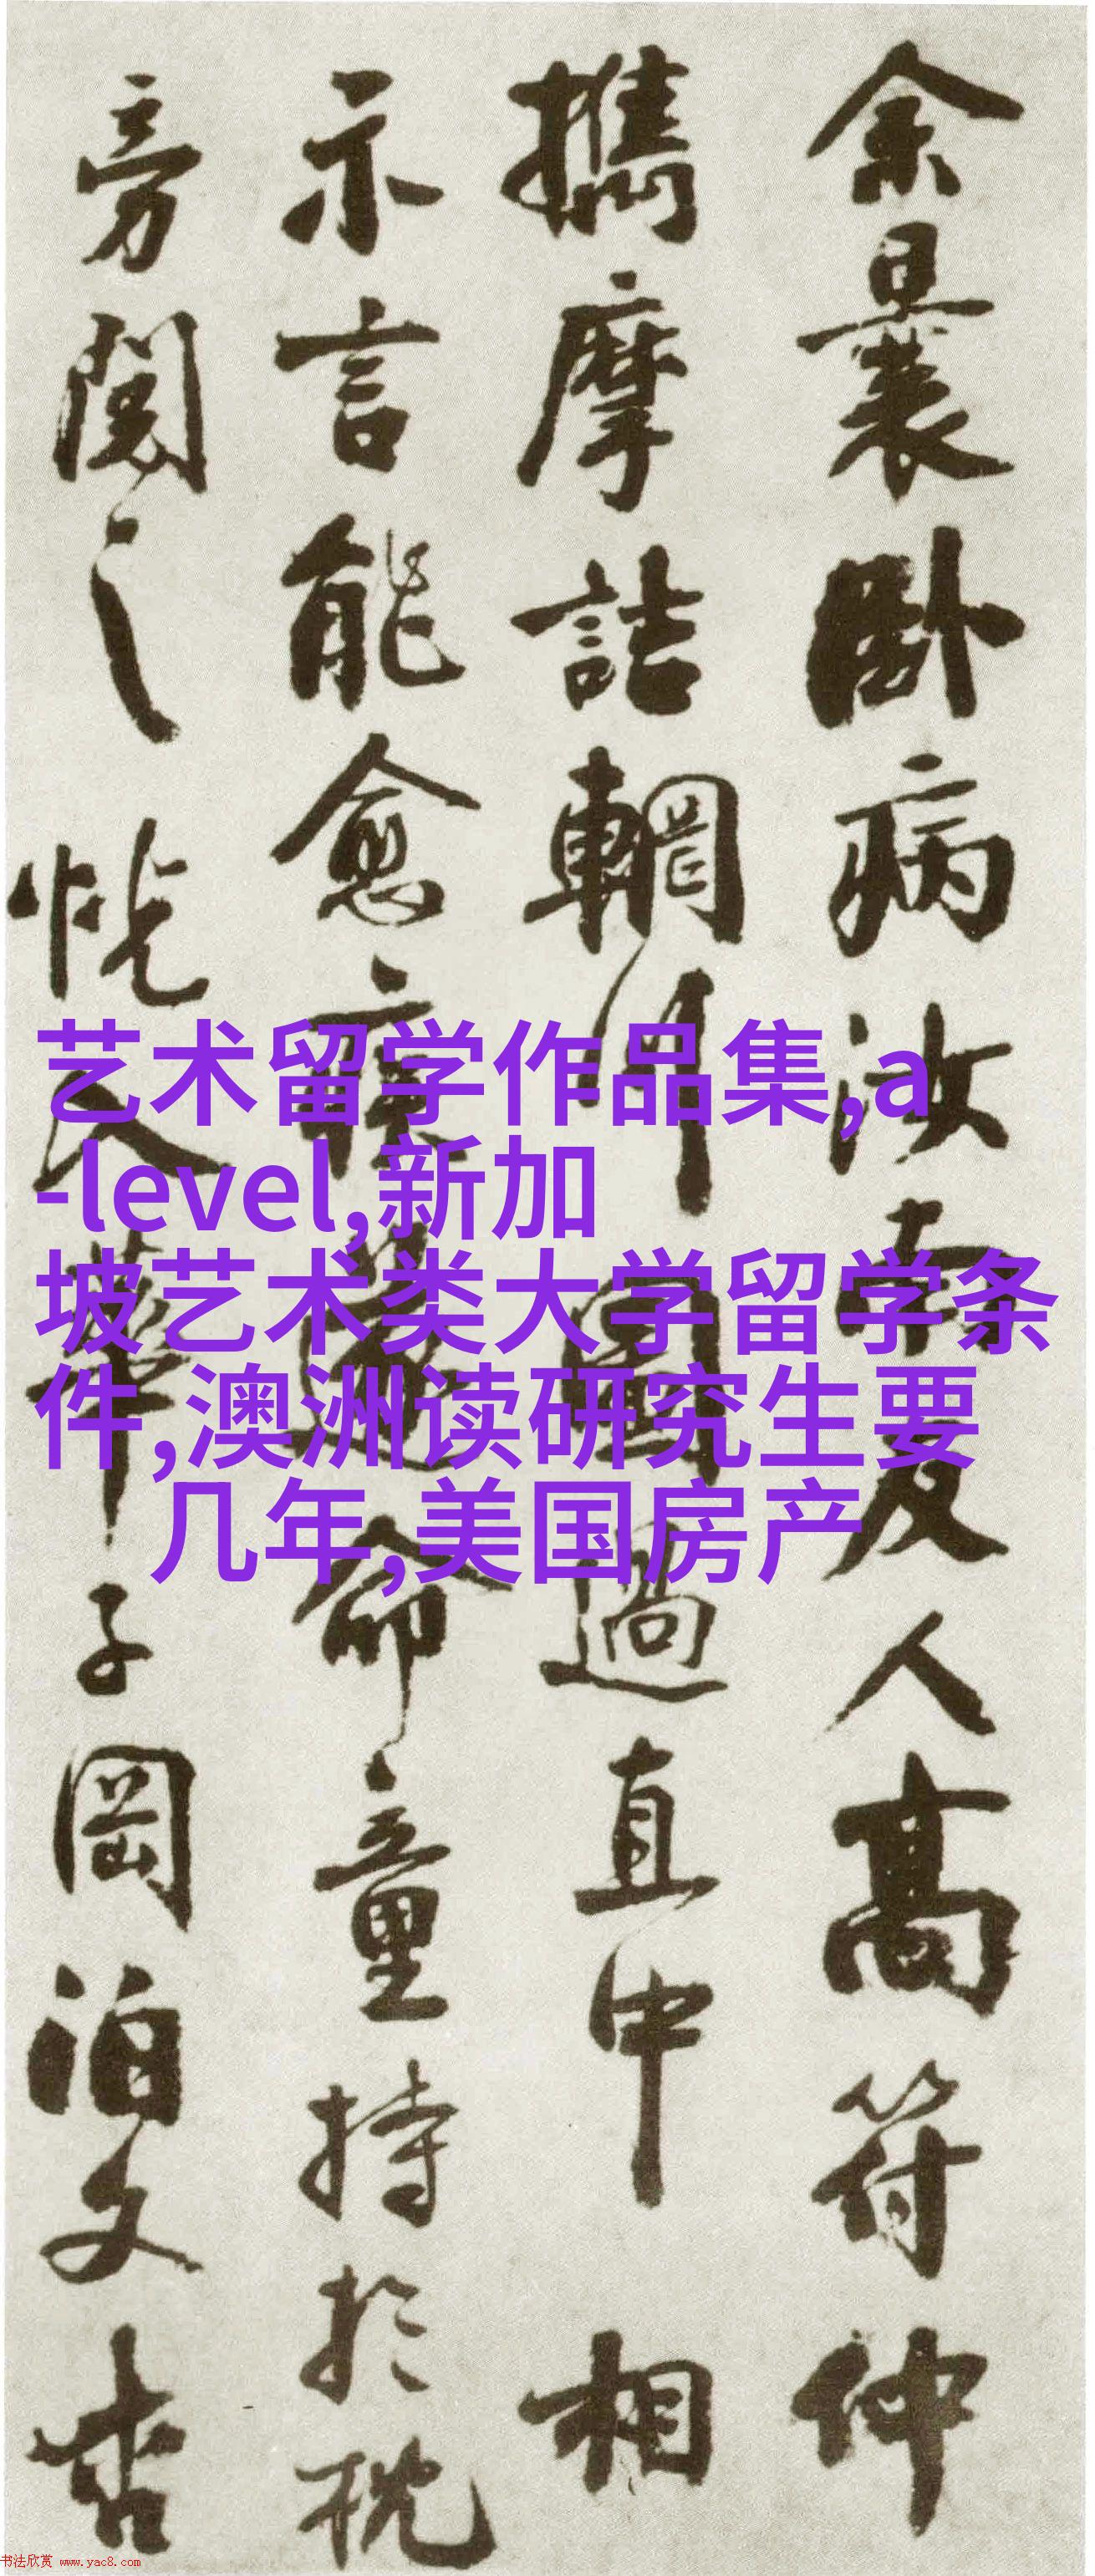 余曩卧病汝南友人高符仲
攜摩詰輞川圖過直中相
示言能愈疾遂命童持於枕
旁閱之恍入華子岡泊文杏
艺术留学作品集,a
-level,新加
坡艺术类大学留学条
件,澳洲读研究生要
几年,美国房产
书法欣赏 www.yac8.com